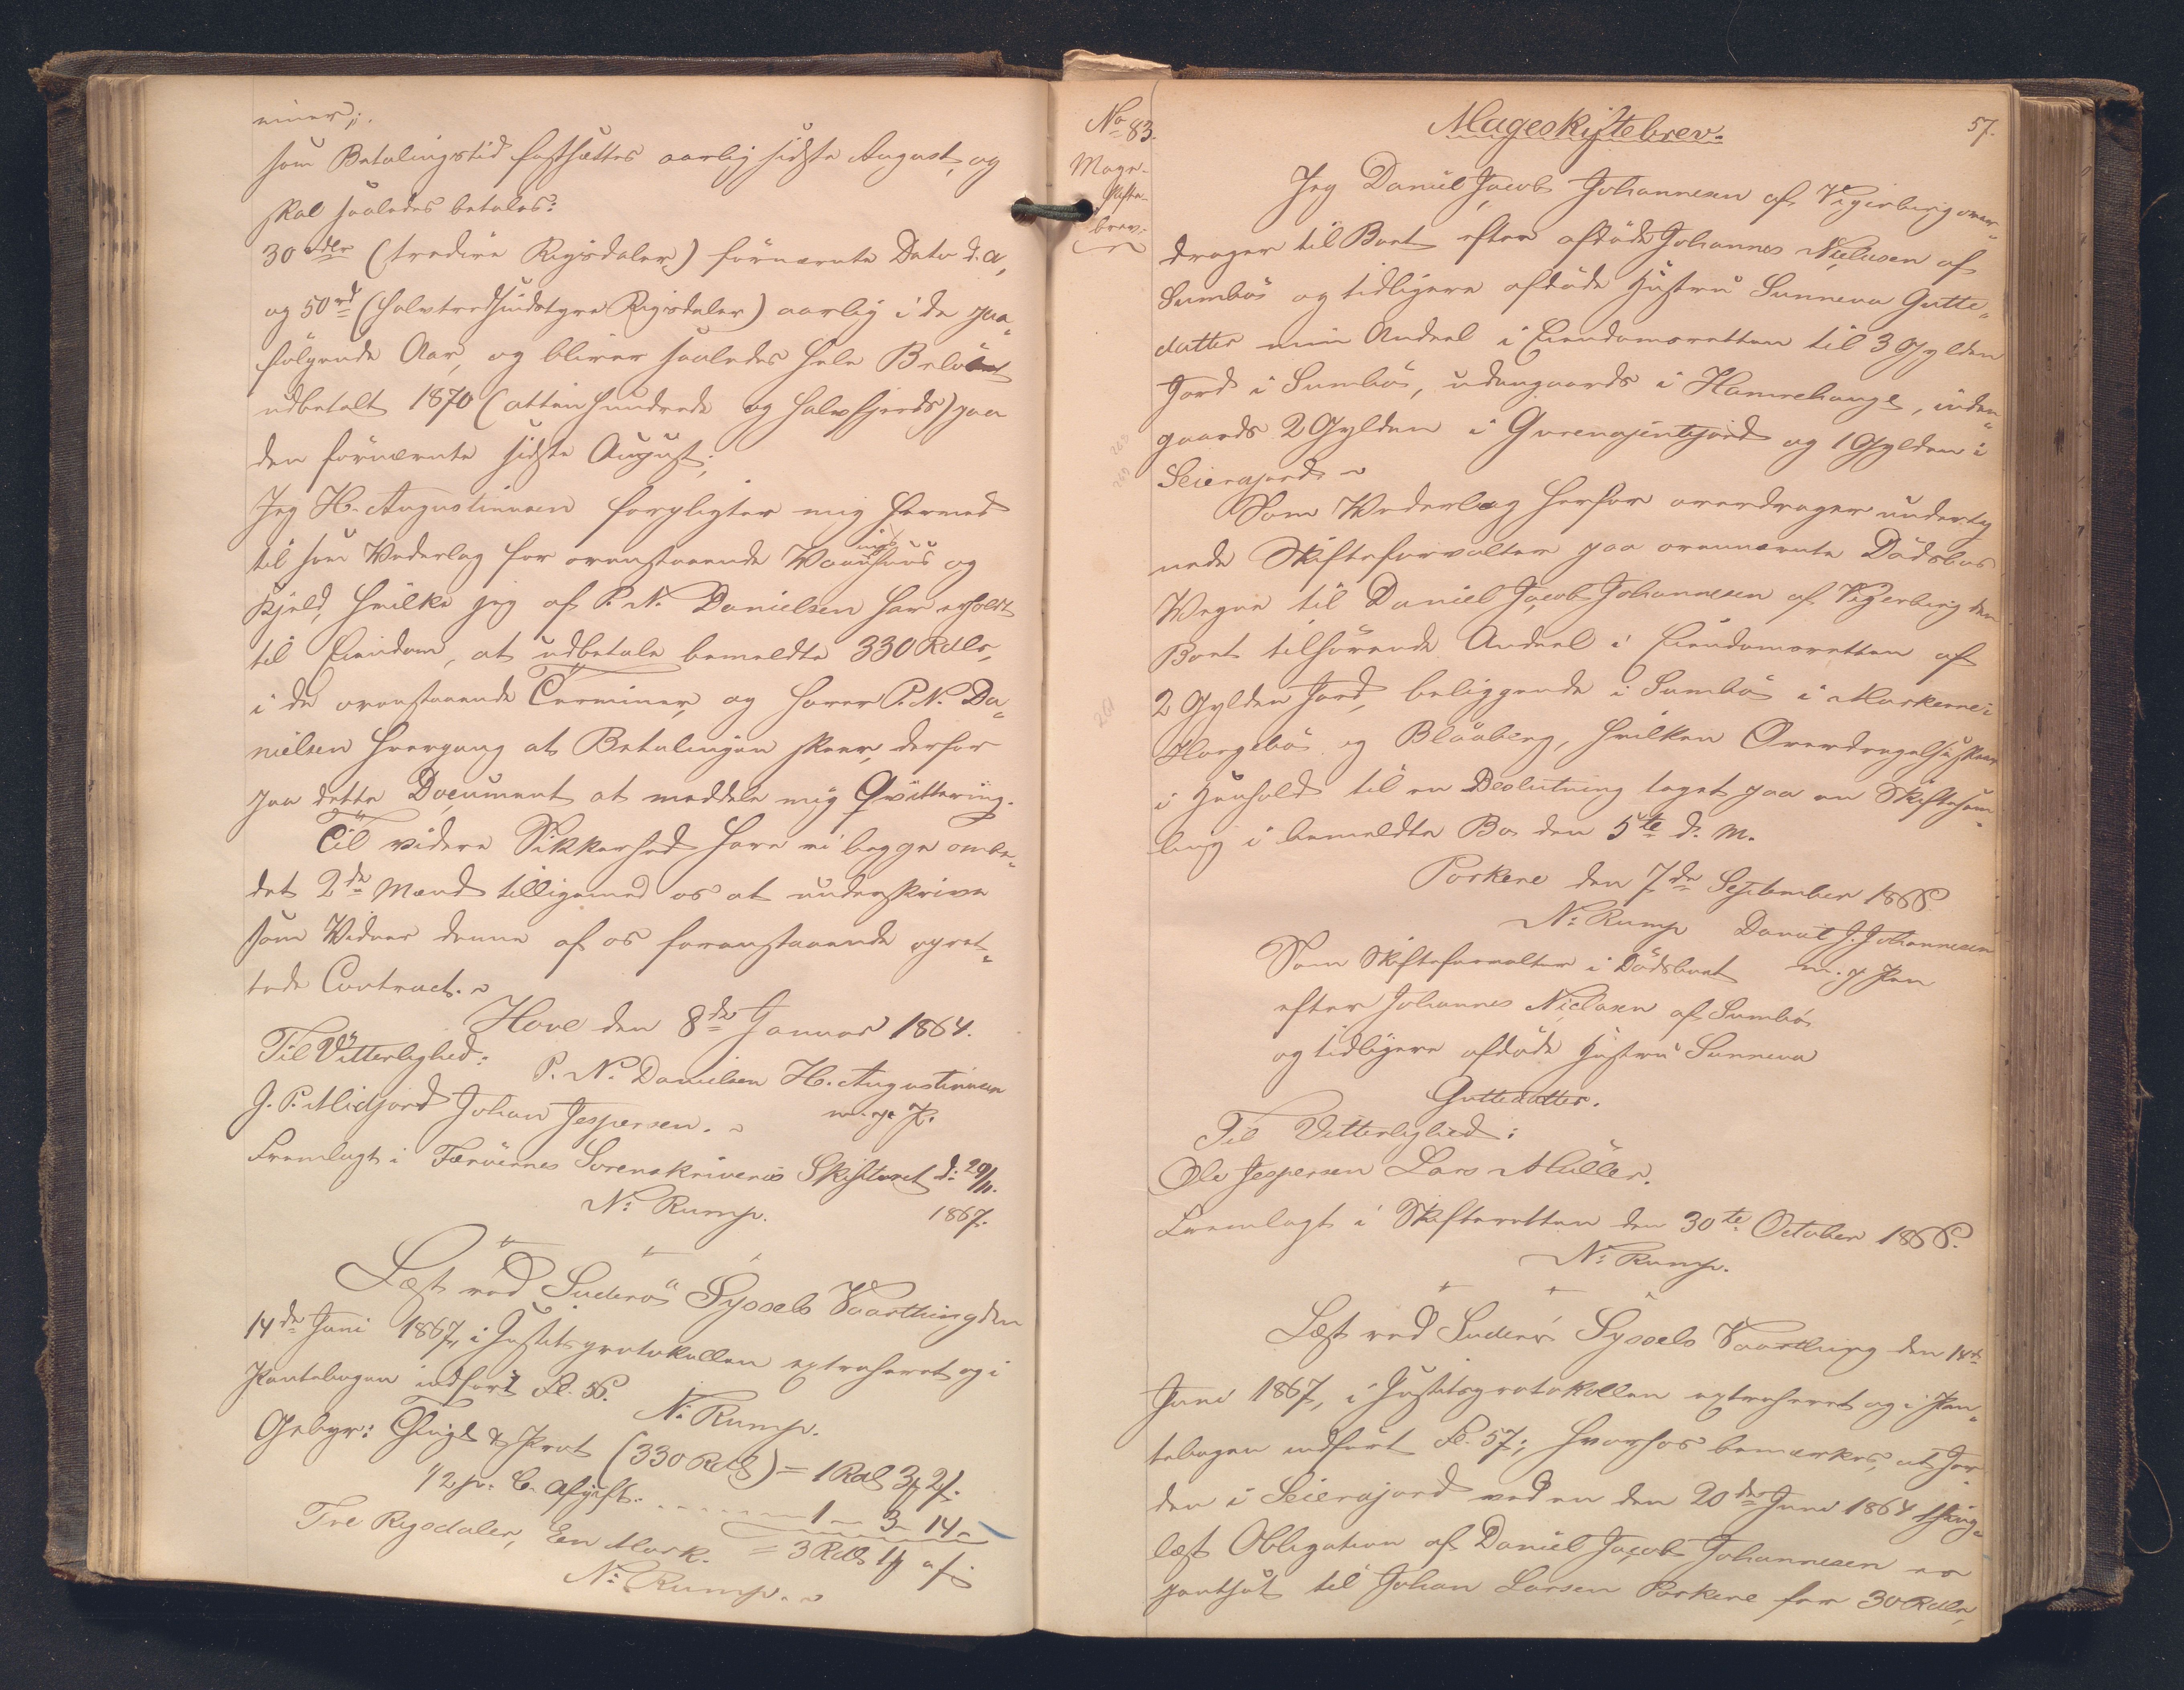 miner;.
som Betalingstid fastsættes aarlig sidste August, og
skal saaledes betales:
30 rdlr (tredive Rigsdaler) førnævnte Dato d. A,
og 50 rd (halvtredsindstyve Rigsdaler) aarlig i de paa„
følgende Aar, og bliver saaledes hele Beløbet
udbetalt 1870 (atten hundrede og halvfjerds) paa
den førnævnte sidste August;
Jeg H. Augustinusen forpligter mig herved
til som Vederlag for ovenstaaende Vaaningshuus og
Kjeld, hvilke jeg af P. N. Danielsen har erholdt
til Eiendom, at udbetale bemeldte 330 Rdlr,
i de ovenstaaende Terminer, og haver P. N. Da„
nielsen hvergang at Betalingen skeer, derfor
paa dette Document at meddele mig Qvittering.
Til videre Sikkerhed have vi begge ombe„
det 2de Mænd tilligemed os at underskrive
som Vidner denne af os foranstaaende opret„
tede Contract.
Hove den 8de Januar 1864.
Til Vitterlighed: P. N. Danielsen H. Augustinusen
J. P. Midjord Johan Jespersen. m. p. P.
Fremlagt i Færøernes Sorenskriveries Skifteret d. 29/11.
N: Rump. 1867.
Læst ved Suderø Syssels Vaarthing den
14de Juni 1867, i Justitsprotokollen extraheret og i
Pantebogen indført Fol. 56.
N: Rump.
Gebyr: Thingl & Prot (330 Rdl) = 1 Rdl 3 ₰ 2 ß.
1/2 pr. C. Afgift. - - - - - 1 - 3 - 14 -
Tre Rigsdaler, Een Mark. = 3 Rdl 1 ₰ " ß
N: Rump.
No 83.
Mage-
skifte-
brev.
57.
Mageskiftebrev.
Jeg Daniel Jacob Johannesen af Vigerberg over„
drager til Boet efter afdøde Johannes Nielsen af
Sumbø og tidligere afdøde Hustru Sunneva Gutte„
datter min Andeel i Eiendomsretten til 3 Gylden
Jord i Sumbø, udengaards i Hamrehauge, inden„
gaards 2 Gylden i Gurenapintejord og 1 Gylden i
Seierajord
Som Vederlag herfor overdrager underteg
nede Skifteforvalter paa ovennævnte Dødsboes
Vegne til Daniel Jacob Johannesen af Vigerberg den
Boet tilhørende Andeel i Eiendomsretten af
2 Gylden Jord, beliggende i Sumbø i Markerne i
Horgebø og Blaaberg, hvilken Overdragelse skeer
i Henhold til en Beslutning taget paa en Skiftesam„
ling i bemeldte Bo den 5te d. M.
Porkere den 7de September 1866
N: Rump Daniel J. Johannesen
Som Skifteforvalter i Dødsboet m. p. Pen
efter Johannes Nielsen af Sumbø
og tidligere afdøde Hustru Sunneva
Guttedatter.
Til Vitterlighed:
Ole Jespersen Lars Müller.
Fremlagt i Skifteretten den 30te October 1866.
N: Rump.
Læst ved Suderø Syssels Vaarthing den 14de
Juni 1867, i Justitsprotokollen extraheret og i Pan„
tebogen indført Fol. 57; hvorhos bemærkes, at Jor„
den i Seierajord ved en den 20de Juni 1864 thing„
læst Obligation af Daniel Jacob Johannesen er
pantsat til Johan Larsen Porkere for 30 Rdlr,